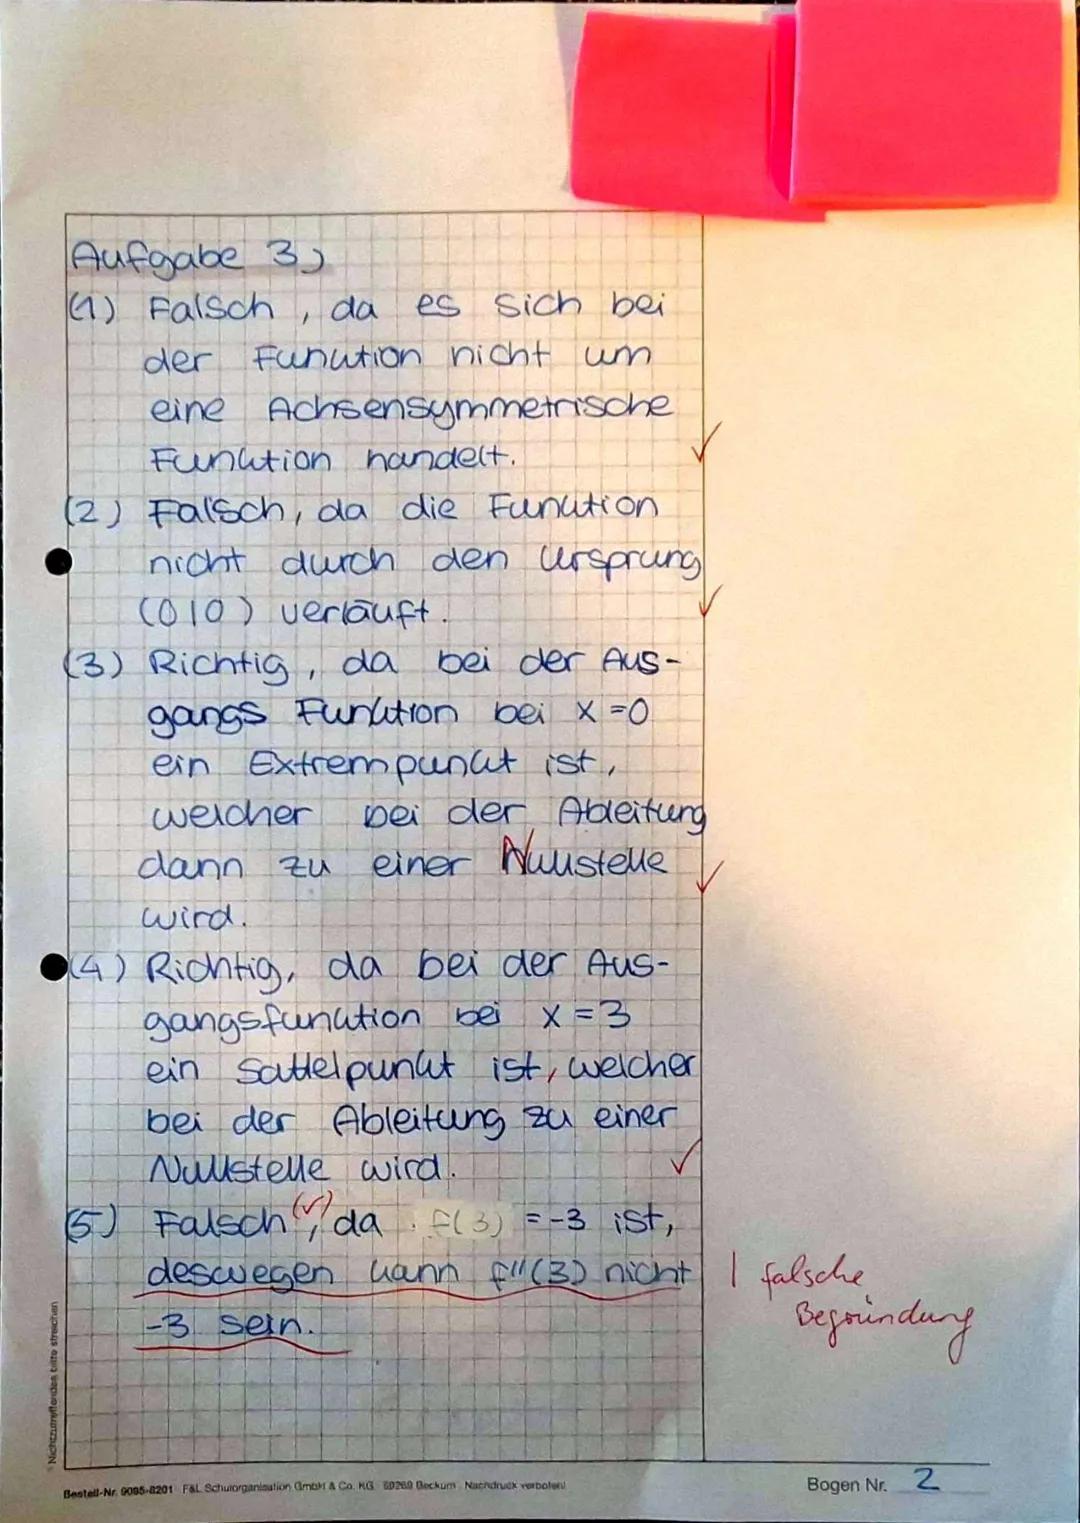 Aufgabe 3)
(1) Falsch, da es sich bei
der Funktion nicht um
eine Achsensymmetrische
Funktion handelt. ✓
(2) Falsch, da die Funktion
nicht durch den Ursprung
(0|0) verläuft. ✓
(3) Richtig, da bei der Aus-
gangs Funktion bei x=0
ein Extrempunkt ist,
welcher bei der Ableitung
dann zu einer Nullstelle ✓
wird.
(4) Richtig, da bei der Aus-
gangsfunktion bei x=3
ein Sattelpunkt ist, welcher
bei der Ableitung zu einer
Nullstelle wird. ✓
(5) Falsch (✓), da f(3) =-3 ist,
deswegen kann f''(3) nicht | falsche
-3 sein. Begründung
Nichtzutreffendes bitte streichen
Bestell-Nr. 9095-8201 F&L Schulorganisation GmbH & Co. KG 59269 Beckum Nachdruck verboten!
Bogen Nr. 2